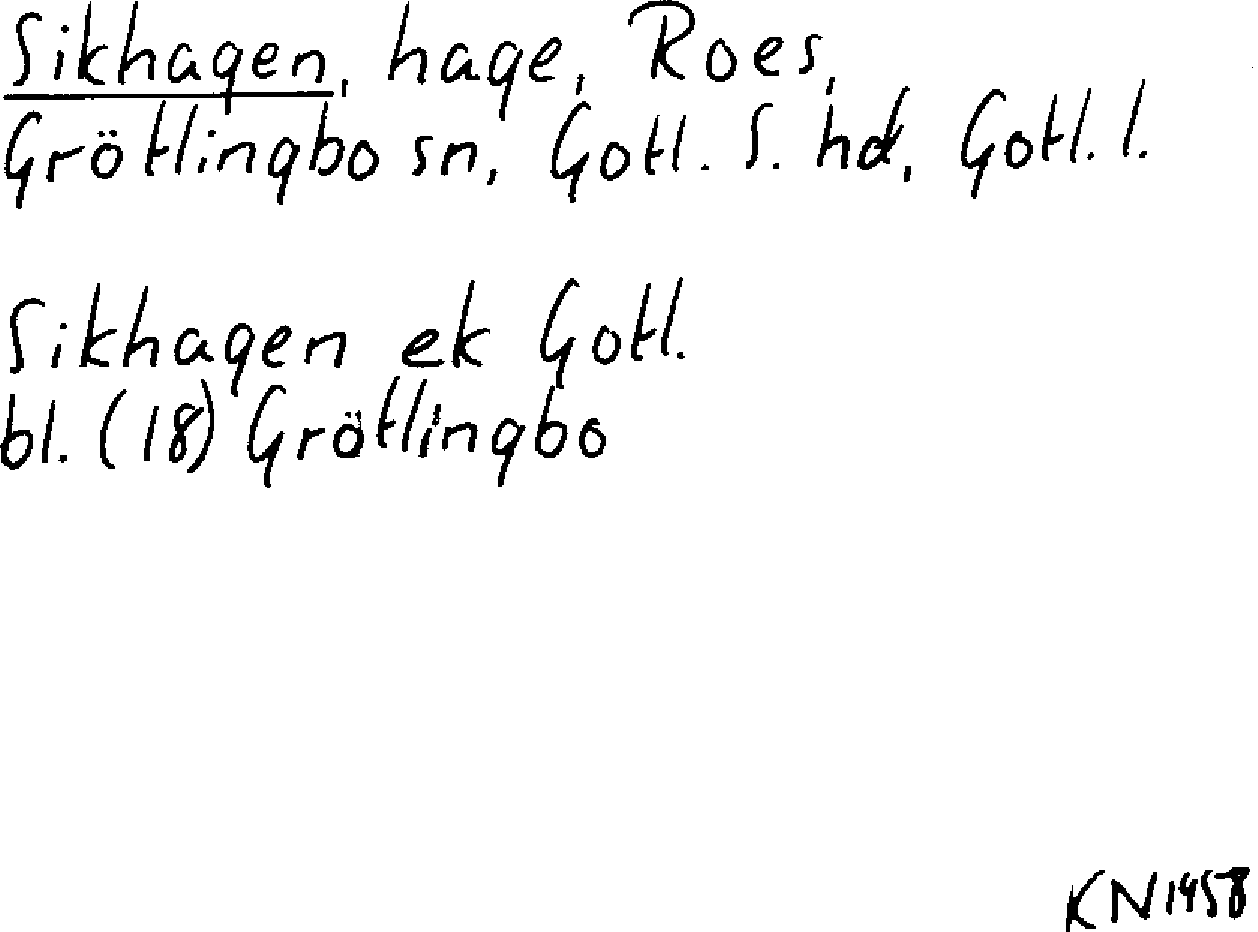 Sikhagen, hage, Roes,
Grötlingbo sn, Gotl. S. hd, Gotl. l.
Sikhagen ek Gotl.
bl. (18) Grötlingbo
KN 1958